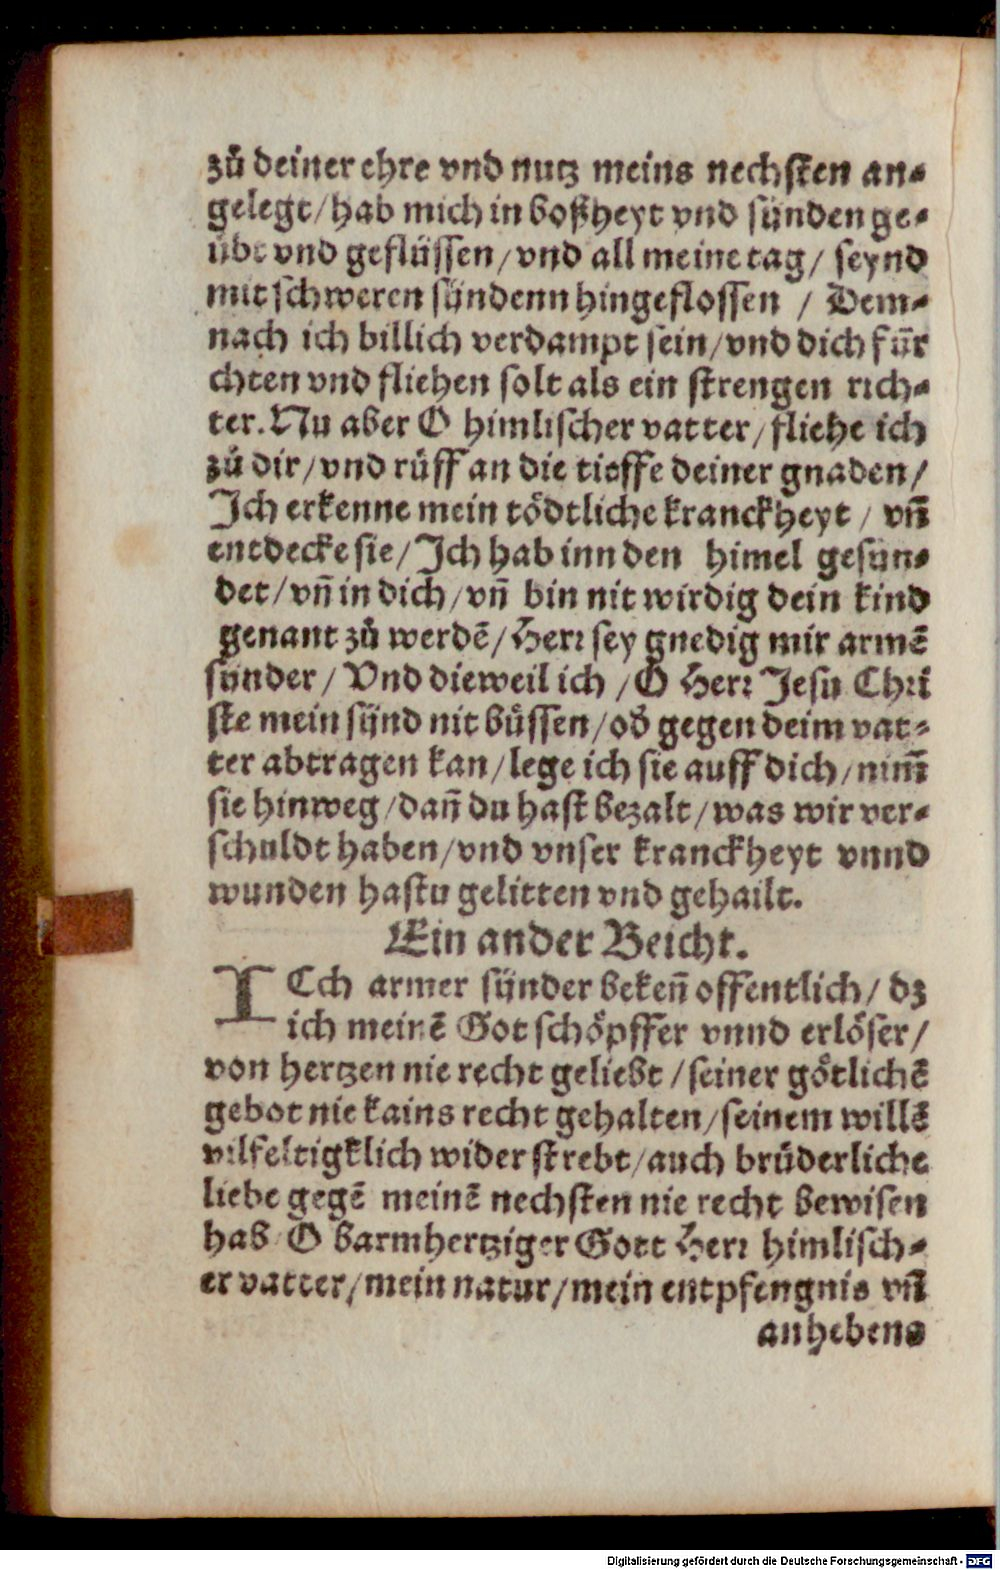 zů deiner ehre vnd nutz meins nechsten an⸗
gelegt/hab mich in boßheyt vnd sünden ge⸗
übt vnd geflüssen/vnd all meine tag/ seynd
mit schweren sündenn hingeflossen / Dem⸗
nach ich billich verdampt sein/vnd dich fūr
chten vnd fliehen solt als ein strengen rich⸗
ter. Nu aber O himlischer vatter/fliehe ich
zů dir/vnd růff an die tieffe deiner gnaden/
Ich erkenne mein tödtliche kranckheyt / vñ
entdecke sie/Ich hab inn den himel gesün⸗
det/vñ in dich/vñ bin nit wirdig dein kind
genant zů werdē/Herr sey gnedig mir armē
sünder/ Vnd dieweil ich /O Herr Jesu Chri
ste mein sünd nit büssen/ob gegen deim vat⸗
ter abtragen kan/lege ich sie auff dich/nim̄
sie hinweg/dañ du hast bezalt/was wir ver⸗
schuldt haben/vnd vnser kranckheyt vnnd
wunden hastu gelitten vnd gehailt.
Ein ander Beicht.
ICch armer sünder bekeñ offentlich/ dz
ich meinē Got schöpffer vnnd erlöser/
von hertzen nie recht geliebt/seiner götlichē
gebot nie kains recht gehalten/seinem willē
vilfeltigklich widerstrebt/auch brüderliche
liebe gegē meinē nechsten nie recht bewisen
hab/O barmhertziger Gott Herr himlisch⸗
er vatter/mein natur/mein entpfengnis vñ
anhebens
Digitalisierung gefördert durch die Deutsche Forschungsgemeinschaft - DFG